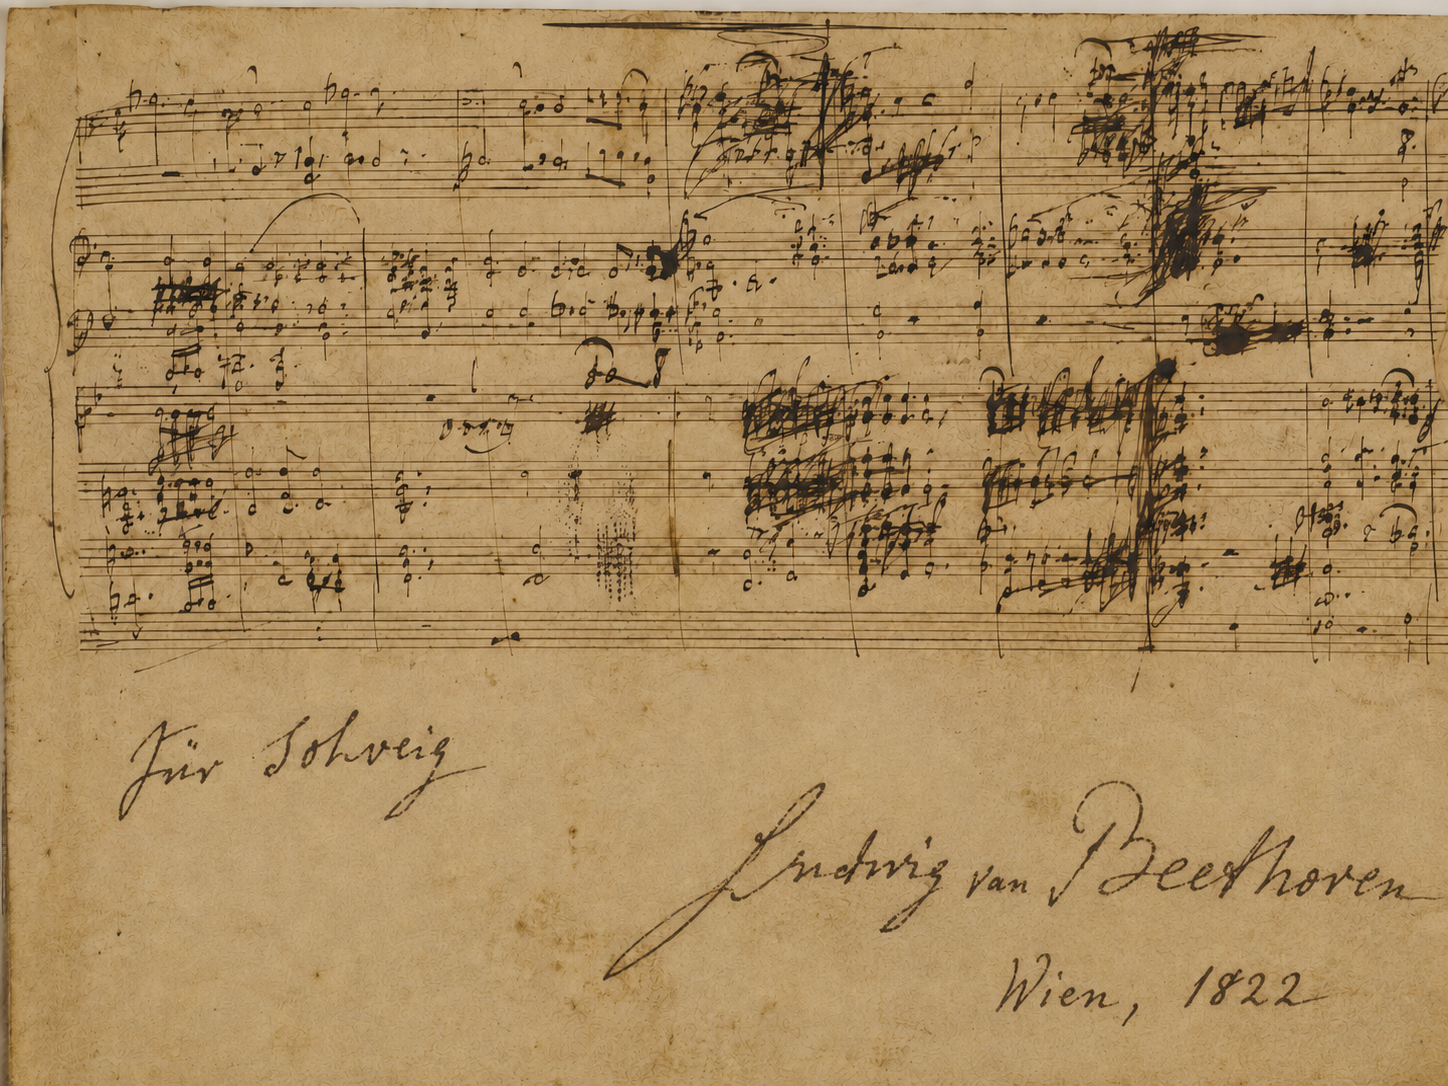 Für Solveig
Ludwig van Beethoven
Wien, 1822